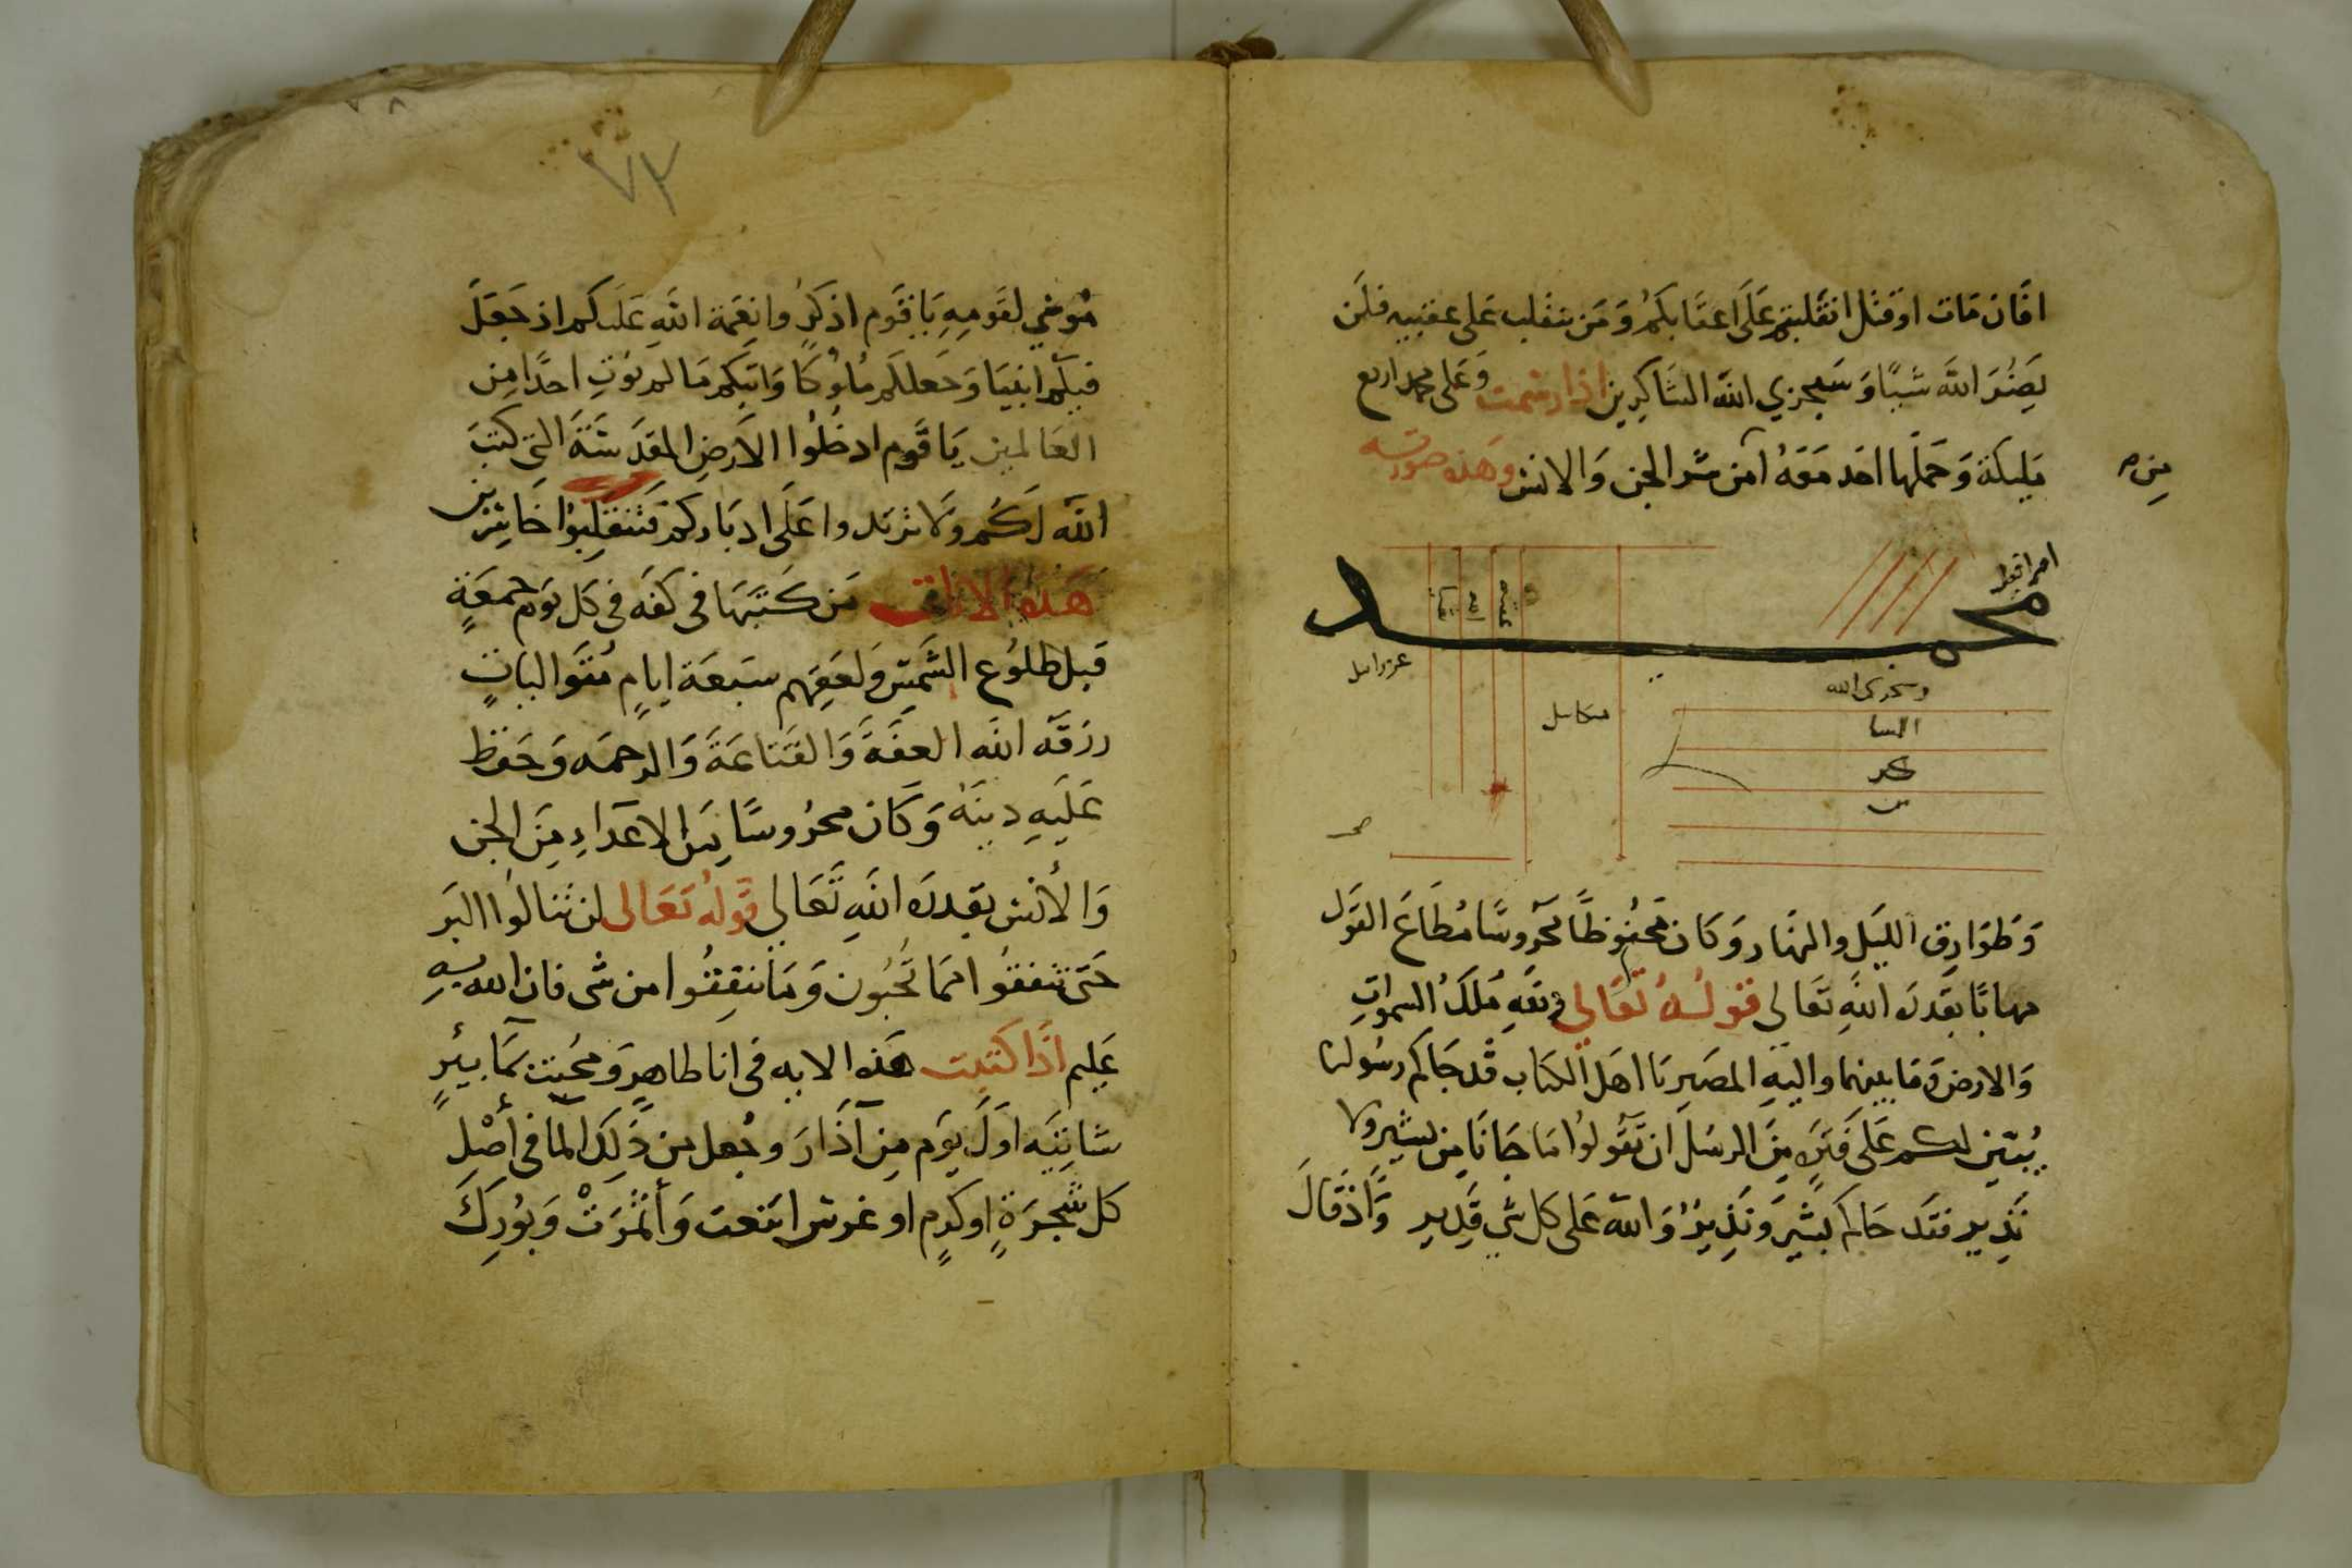 افان مات او قتل انقلبتم على اعقابكم ومن ينقلب على عقبيه فلن
يضر الله شيا وسيجزي الله الشاكرين اذا رسمت وعلى محمد اربع
مليكة وحملها احد معه امن من شر الجن والانس وهذه صورته
محمد
عزرايل
ميكايل
وسيجزى الله
الشا
كر
ين
وطوارق الليل والنهار وكان محفوظا محروسا مطاع القول
مهابا بقدرة الله تعالي قوله تعالي ولله ملك السموات
والارض وما بينهما واليه المصير يا اهل الكتاب قد جاكم رسولنا
يبين لكم على فترة من الرسل ان تقولوا ما جانا من بشير ولا
نذير فقد جاكم بشير ونذير والله على كل شي قدير واذ قال
٧٣
موسي لقومه يا قوم اذكروا نعمة الله عليكم اذ جعل
فيكم انبيا وجعلكم ملوكا واتيكم ما لم يوت احدا من
العالمين يا قوم ادخلوا الارض المقدسة التي كتب
الله لكم ولا ترتدوا على ادباركم فتنقلبوا خاسرين
هذه الايات من كتبها في كفه في كل يوم جمعة
قبل طلوع الشمس ولعقهم سبعة ايام متواليات
رزقه الله العفة والقناعة والرحمه وحفظ
عليه دينه وكان محروسا من الاعداء من الجن
والأنس بقدرة الله تعالي قوله تعالى لن تنالوا البر
حتى تنفقوا مما تحبون وما تنفقوا من شى فان الله به
عليم اذا كتبت هذه الايه في انا طاهر ومحيت بما بئر
سانيه اول يوم من آذار وجعل من ذلك الما في أصل
كل شجرة او كرم او غرس اينعت وأثمرت وبورك